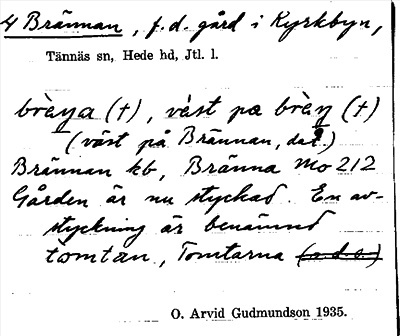 4 Brännan, f.d. gård i Kyrkbyn,
Tännäs sn, Hede hd, Jtl. l.
brèŋa (+), vèst pæ brèŋ (+)
(väst på Brännan, dat.)
Brännan kb, Bränna Mo 212
Gården är nu styckad. En av-
styckning är benämnd
tomtan, Tomtarna (s.d.o.)
O. Arvid Gudmundson 1935.